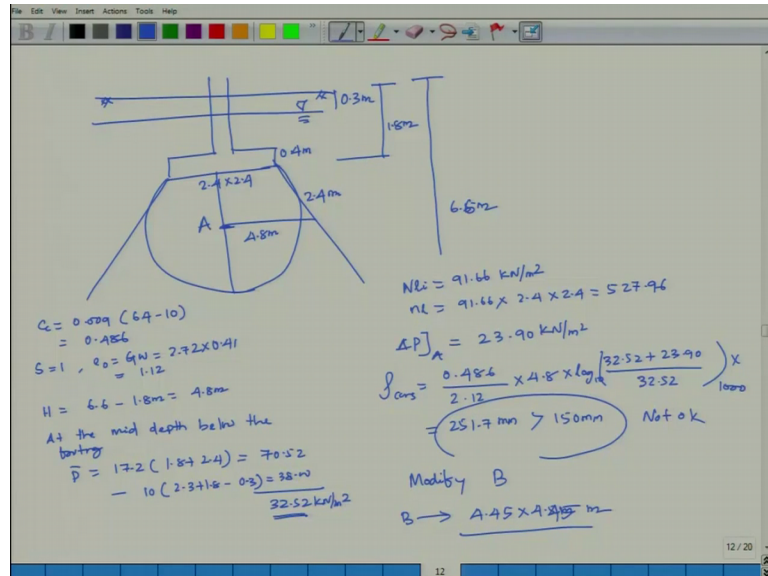 File Edit View Insert Actions Tools Help
B I
0.3m
1.8m
0.4m
2.4 x 2.4
2.4m
A
4.8m
6.6m
Cc = 0.009 (64-10)
= 0.486
S = 1, e0 = GW = 2.72 x 0.41
= 1.12
H = 6.6 - 1.8m = 4.8m
At the mid depth below the
P̄ = 17.2 (1.8 + 2.4) = 70.52
- 10 (2.3+1.8 - 0.3) = 38.00
32.52 kN/m2
Nli = 91.66 kN/m2
nl = 91.66 x 2.4 x 2.4 = 527.96
ΔP]A = 23.90 kN/m2
ρcons = 0.486 / 2.12 x 4.8 x log10 (32.52 + 23.90 / 32.52) x 1000
= 251.7 mm > 150mm Not ok
Modify B
B → 4.45 x 4.45 m
12 / 20
12